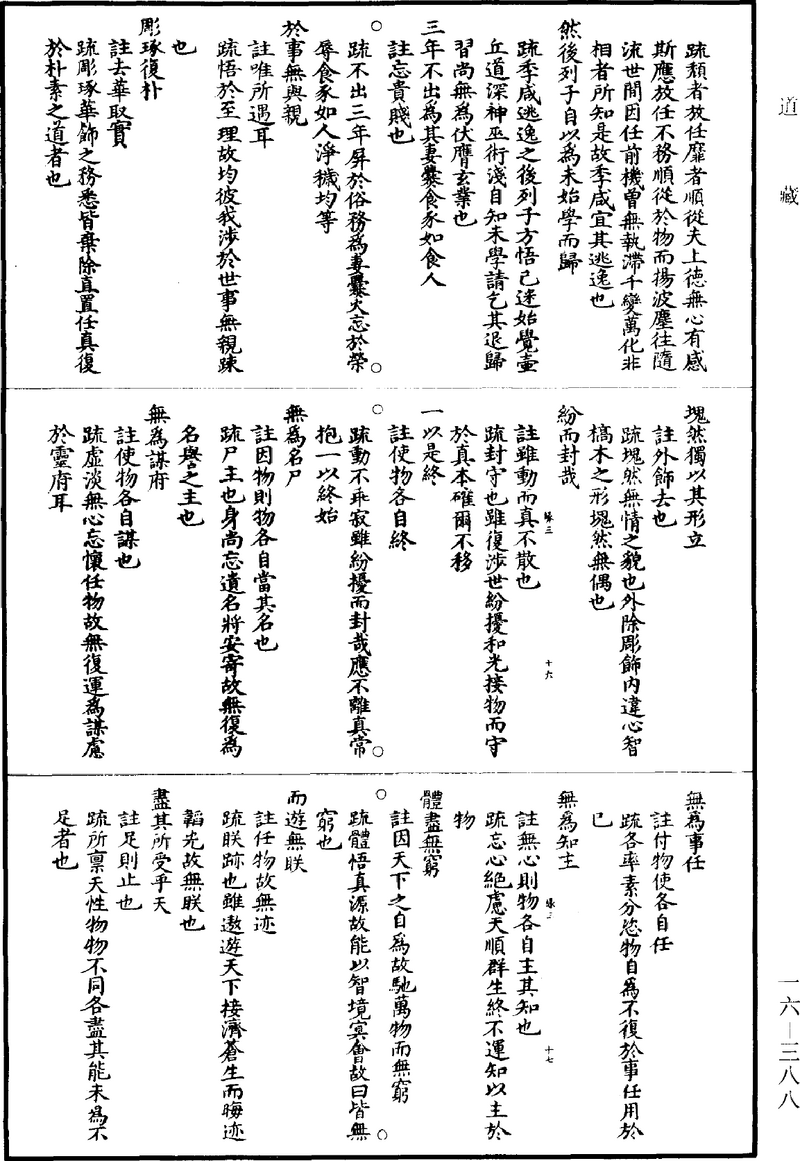 道藏
疏頹者放任靡者順從夫上德無心有感
斯應放任不務順從於物而揚波塵往隨
流世間因任前機曾無執滯千變萬化非
相者所知是故季咸宜其逃逸也
然後列子自以為未始學而歸
疏季咸逃逸之後列子方悟己迷始覺壺
丘道深神巫術淺自知未學請乞其退歸
習尚無為伏膺玄業也
三年不出為其妻爨食豕如食人
註忘貴賤也
疏不出三年屏於俗務為妻爨火忘於榮
辱食豕如人淨穢均等
於事無與親
註唯所遇耳
疏悟於至理故均彼我涉於世事無親踈
也
彫琢復朴
註去華取實
疏彫琢華飾之務悉皆棄除直置任真復
於朴素之道者也
塊然獨以其形立
註外飾去也
疏塊然無情之貌也外除彫飾內違心智
槁木之形塊然無偶也
紛而封哉
註雖動而真不散也
疏封守也雖復涉世紛擾和光接物而守
於真本確爾不移
一以是終
註使物各自終
疏動不乖寂雖紛擾而封哉應不離真常
抱一以終始
無為名尸
註因物則物各自當其名也
疏尸主也身尚忘遺名將安寄故無復為
名譽之主也
無為謀府
註使物各自謀也
疏虛淡無心忘懷任物故無復運為謀慮
於靈府耳
十六
無為事任
註付物使各自任
疏各率素分恣物自為不復於事任用於
已
無為知主
註無心則物各自主其知也
疏忘心絕慮天順群生終不運知以主於
物
體盡無窮
註因天下之自為故馳萬物而無窮
疏體悟真源故能以智境冥會故曰皆無
窮也
而遊無朕
註任物故無迹
疏朕跡也雖遨遊天下接濟蒼生而晦迹
韜光故無朕也
盡其所受乎天
註足則止也
疏所稟天性物物不同各盡其能未為不
足者也
十七
一六—三八八